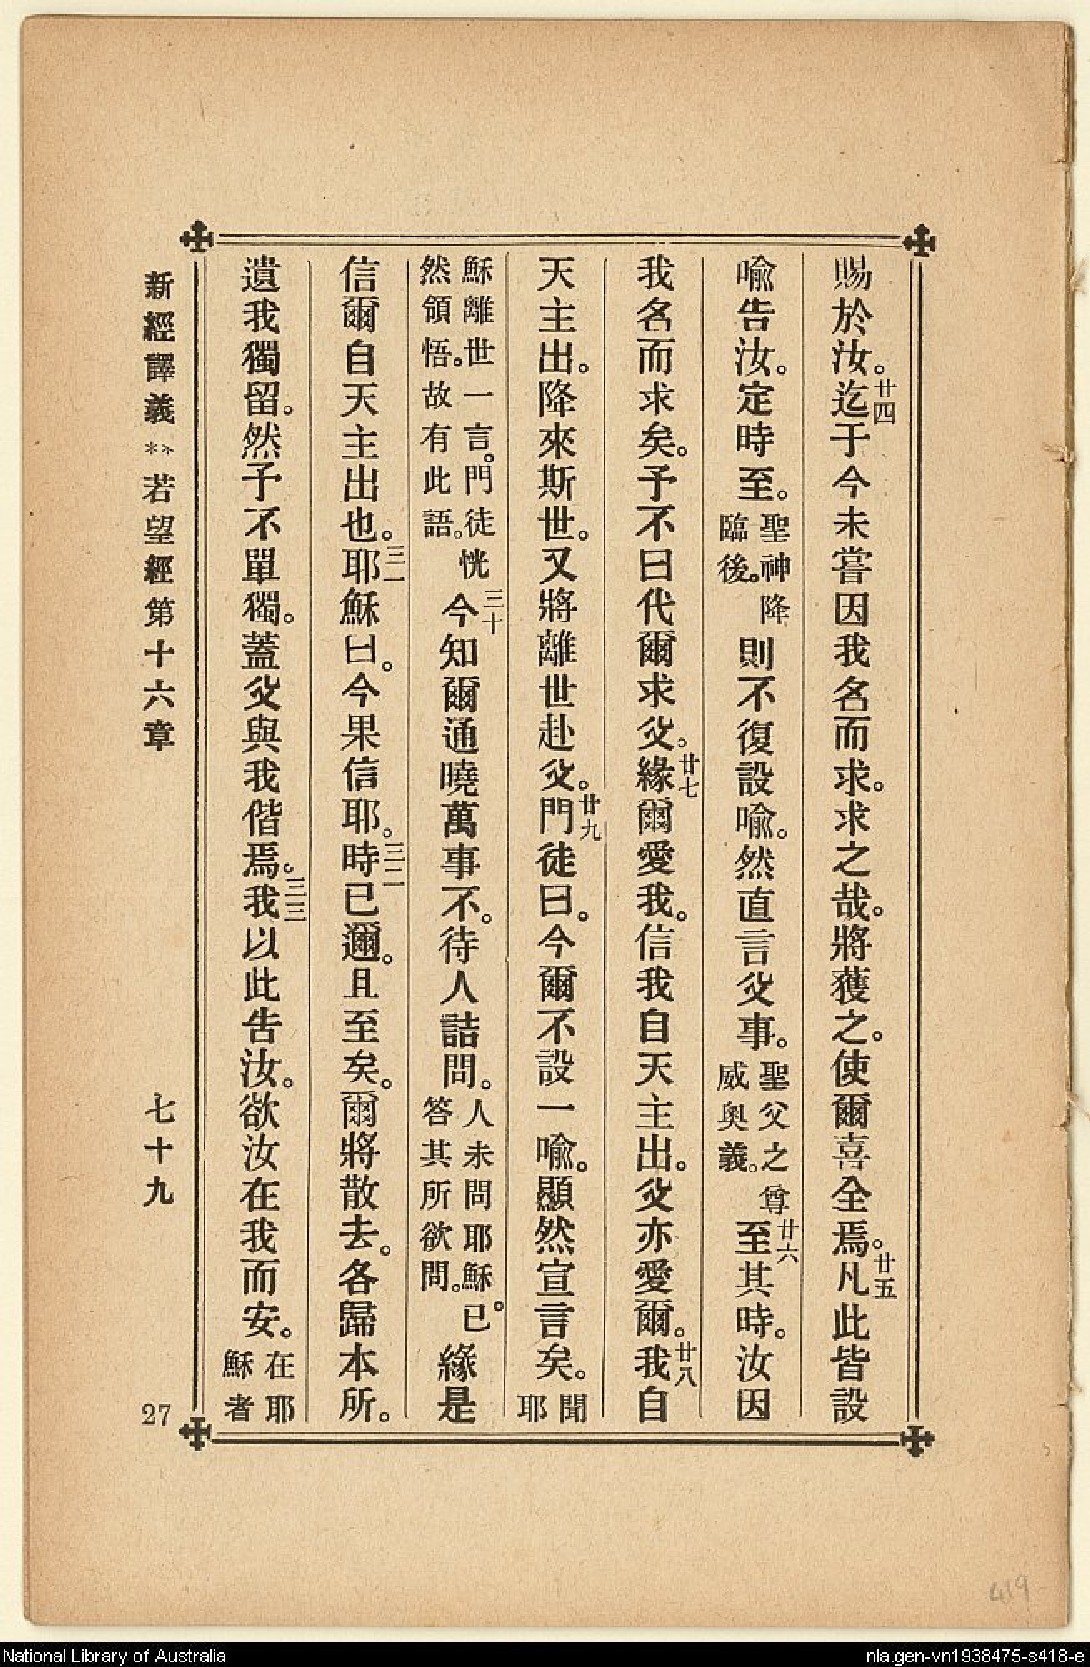 賜於汝。廿四迄于今未嘗因我名而求。求之哉。將獲之。使爾喜全焉。廿五凡此皆設
喻告汝。定時至。聖神降臨後。則不復設喻。然直言父事。聖父之尊威奥義。廿六至其時。汝因
我名而求矣。予不曰代爾求父。廿七緣爾愛我。信我自天主出。父亦愛爾。廿八我自
天主出。降來斯世。又將離世赴父。廿九門徒曰。今爾不設一喻。顯然宣言矣。聞耶
穌離世一言。門徒恍然領悟。故有此語。三十今知爾通曉萬事。不待人詰問。人未問耶穌已。答其所欲問。緣是
信爾自天主出也。三一耶穌曰。今果信耶。三二時已邇。且至矣。爾將散去。各歸本所。
遺我獨留。然予不單獨。蓋父與我偕焉。三三我以此告汝。欲汝在我而安。在耶穌者
新經譯義**若望經第十六章 七十九 27
419
National Library of Australia
nla.gen-vn1938475-s418-e